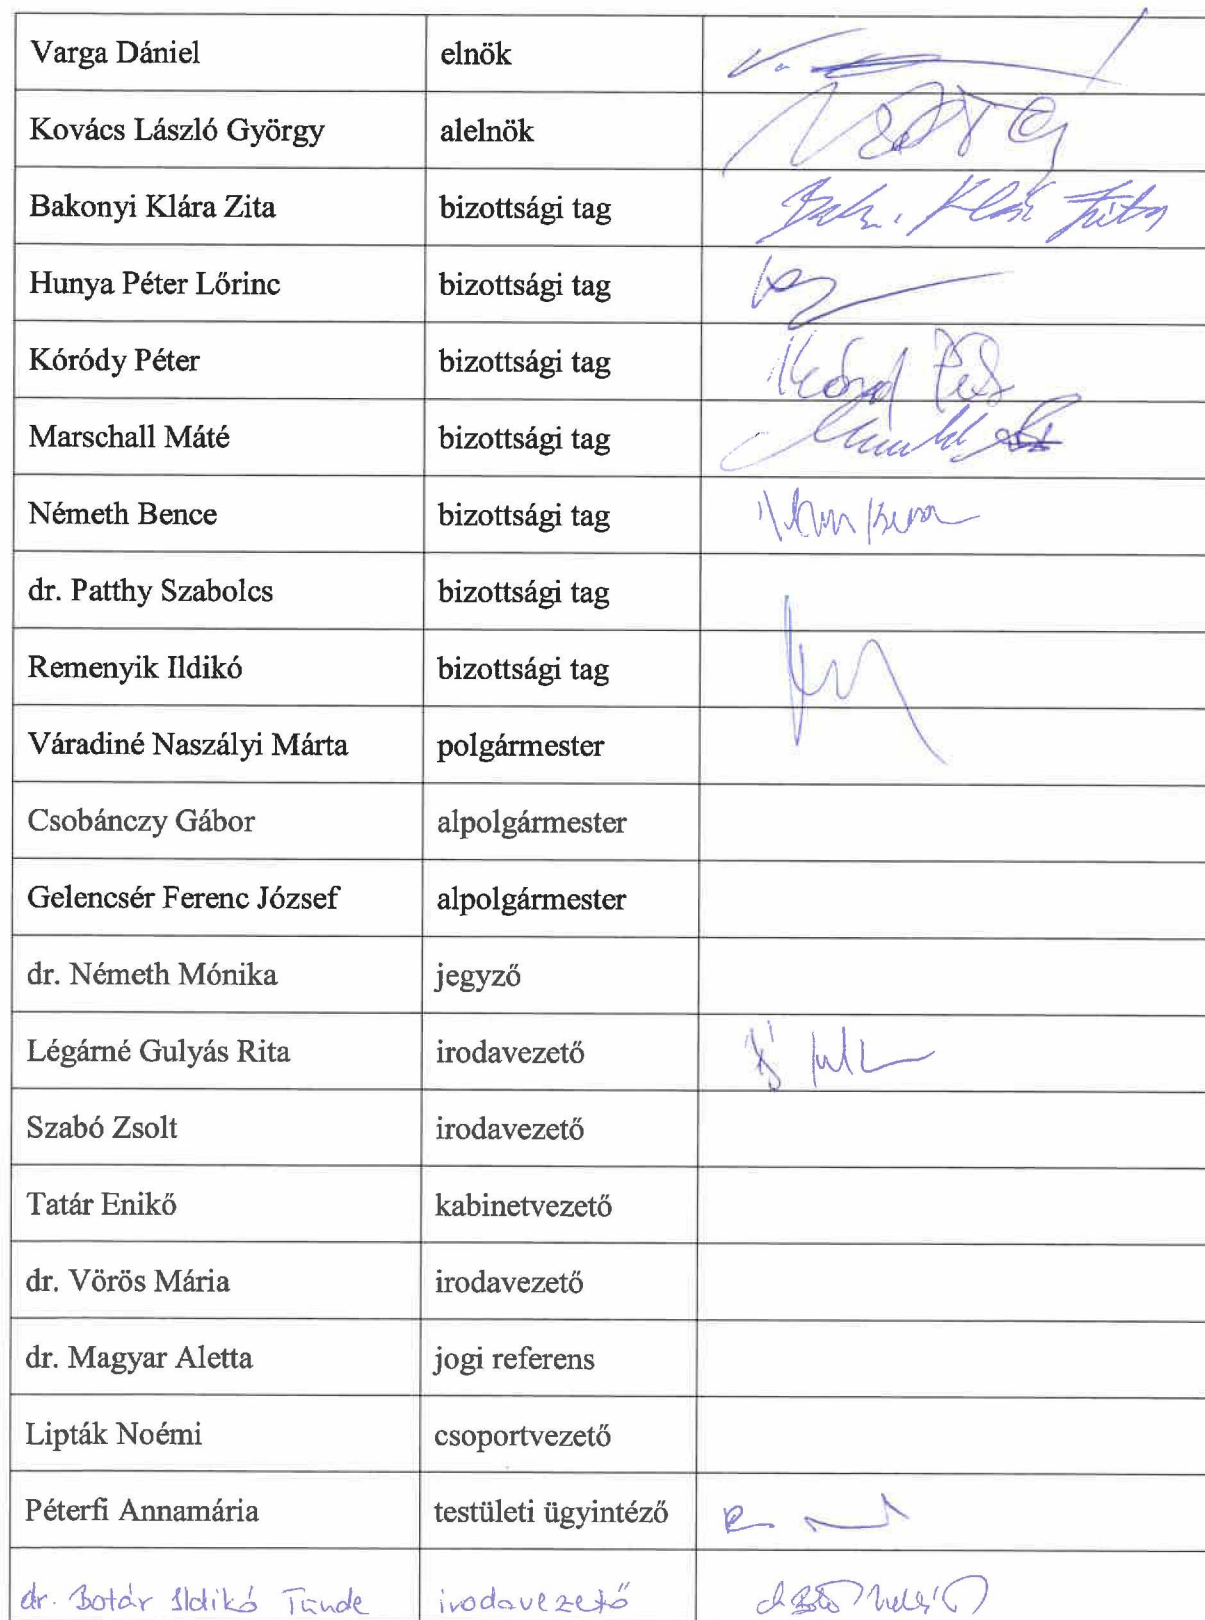 Varga Dániel elnök
Kovács László György alelnök
Bakonyi Klára Zita bizottsági tag
Hunya Péter Lőrinc bizottsági tag
Kóródy Péter bizottsági tag
Marschall Máté bizottsági tag
Németh Bence bizottsági tag
dr. Patthy Szabolcs bizottsági tag
Remenyik Ildikó bizottsági tag
Váradiné Naszályi Márta polgármester
Csobánczy Gábor alpolgármester
Gelencsér Ferenc József alpolgármester
dr. Németh Mónika jegyző
Légárné Gulyás Rita irodavezető
Szabó Zsolt irodavezető
Tatár Enikő kabinetvezető
dr. Vörös Mária irodavezető
dr. Magyar Aletta jogi referens
Lipták Noémi csoportvezető
Péterfi Annamária testületi ügyintéző
dr. Botár Ildikó Tünde irodavezető